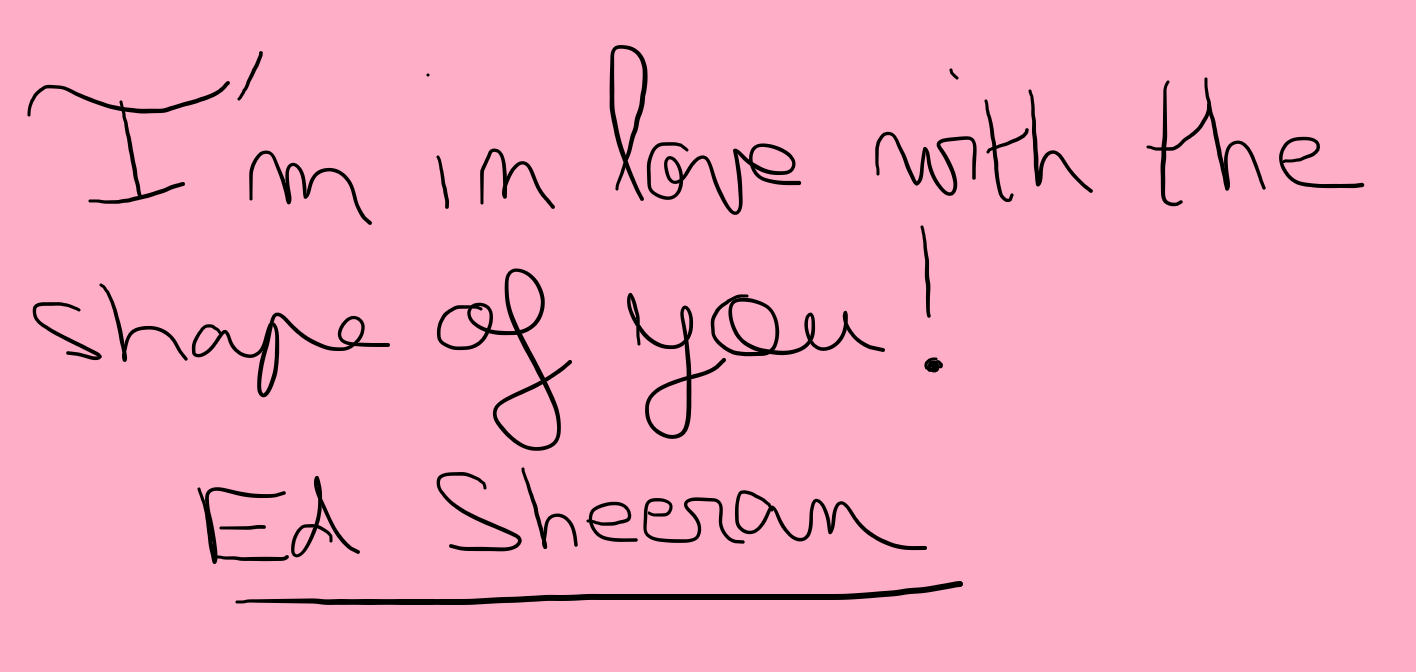 I'm in love with the
shape of you!
Ed Sheeran